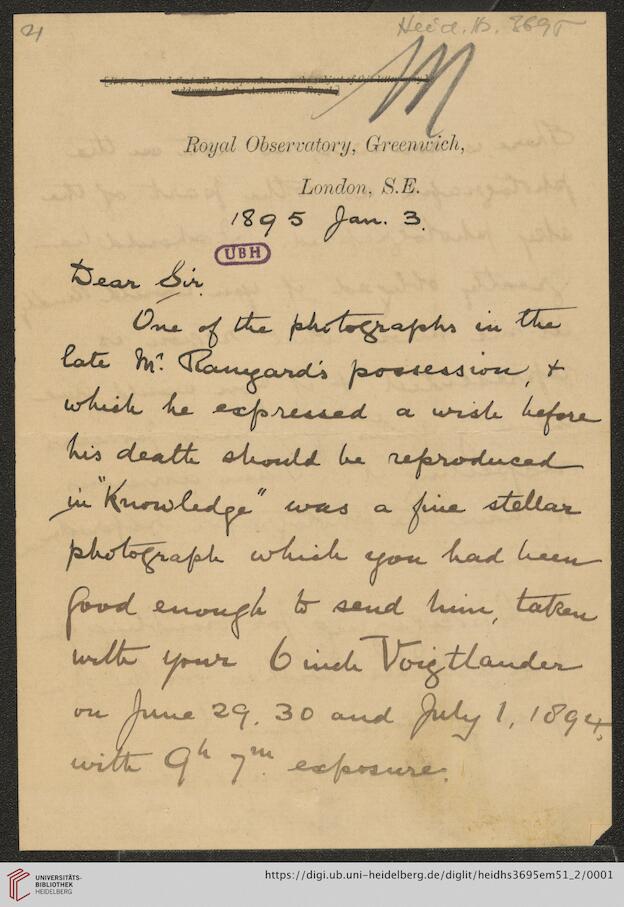 21
Heid. Hs. 3695
M
Royal Observatory, Greenwich,
London, S.E.
1895 Jan. 3.
UBH
Dear Sir,
One of the photographs in the
late Mr. Ranyard's possession, &
which he expressed a wish before
his death should be reproduced
in "Knowledge" was a fine stellar
photograph which you had been
good enough to send him, taken
with your 6 inch Voigtlander
on June 29. 30 and July 1, 1894,
with 9h 7m. exposure.
UNIVERSITÄTS-
BIBLIOTHEK
HEIDELBERG
https://digi.ub.uni-heidelberg.de/diglit/heidhs3695em51_2/0001